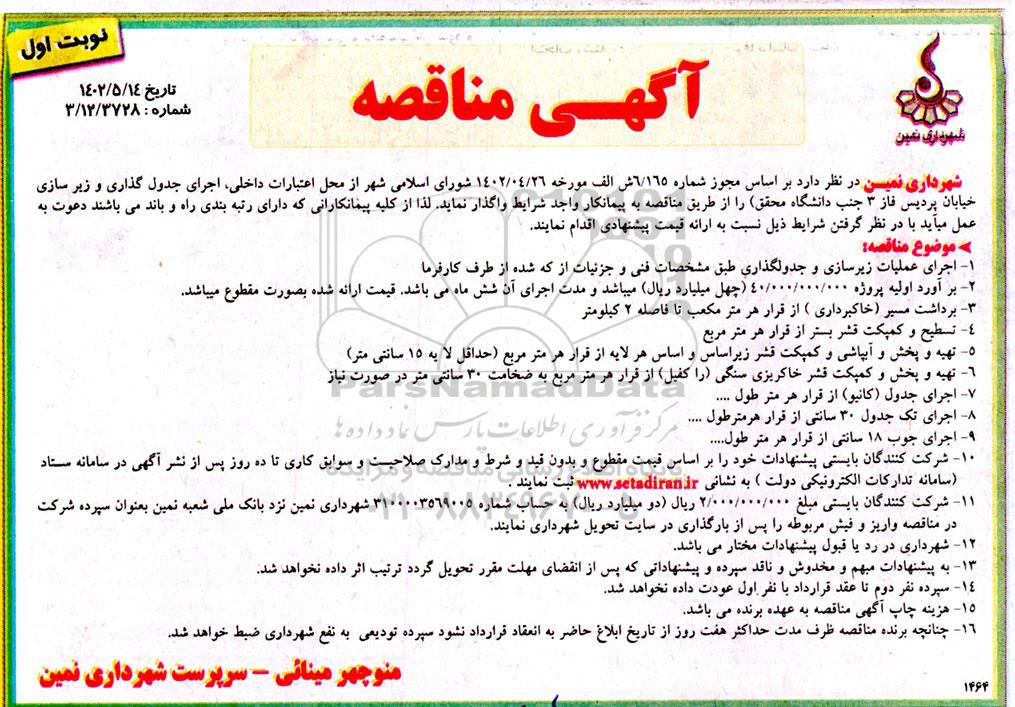 نوبت اول
آگهی مناقصه
تاریخ ۱۴۰۲/۵/۱۴
شماره : ۳/۱۲/۳۷۲۸
شهرداری نمین
شهرداری نمین در نظر دارد بر اساس مجوز شماره ۶/۱۶۵/ش الف مورخه ۱۴۰۲/۰۴/۲۶ شورای اسلامی شهر از محل اعتبارات داخلی، اجرای جدول گذاری و زیر سازی
خیابان پردیس فاز ۳ جنب دانشگاه محقق) را از طریق مناقصه به پیمانکار واجد شرایط واگذار نماید. لذا از کلیه پیمانکارانی که دارای رتبه بندی راه و باند می باشند دعوت به
عمل میآید با در نظر گرفتن شرایط ذیل نسبت به ارائه قیمت پیشنهادی اقدام نمایند.
موضوع مناقصه:
۱- اجرای عملیات زیرسازی و جدولگذاری طبق مشخصات فنی و جزئیات از که شده از طرف کارفرما
۲- بر آورد اولیه پروژه ۴۰/۰۰۰/۰۰۰/۰۰۰ (چهل میلیارد ریال) میباشد و مدت اجرای آن شش ماه می باشد. قیمت ارائه شده بصورت مقطوع میباشد.
۳- برداشت مسیر (خاکبرداری ) از قرار هر متر مکعب تا فاصله ۲ کیلومتر
۴- تسطیح و کمپکت قشر بستر از قرار هر متر مربع
۵- تهیه و پخش و آبپاشی و کمپکت قشر زیراساس و اساس هر لایه از قرار هر متر مربع (حداقل لا یه ۱۵ سانتی متر)
۶- تهیه و پخش و کمپکت قشر خاکریزی سنگی (را کفیل) از قرار هر متر مربع به ضخامت ۳۰ سانتی متر در صورت نیاز
۷- اجرای جدول (کانیو) از قرار هر متر طول ....
۸- اجرای تک جدول ۳۰ سانتی از قرار هرمترطول ....
۹- اجرای جوب ۱۸ سانتی از قرار هر متر طول....
۱۰- شرکت کنندگان بایستی پیشنهادات خود را بر اساس قیمت مقطوع و بدون قید و شرط و مدارک صلاحیت و سوابق کاری تا ده روز پس از نشر آگهی در سامانه ستاد
(سامانه تدارکات الکترونیکی دولت ) به نشانی www.setadiran.ir ثبت نمایند .
۱۱- شرکت کنندگان بایستی مبلغ ۲/۰۰۰/۰۰۰/۰۰۰ ریال (دو میلیارد ریال) به حساب شماره ۳۱۰۰۰۳۵۶۹۰۰۵ شهرداری نمین نزد بانک ملی شعبه نمین بعنوان سپرده شرکت
در مناقصه واریز و فیش مربوطه را پس از بارگذاری در سایت تحویل شهرداری نمایند.
۱۲- شهرداری در رد یا قبول پیشنهادات مختار می باشد.
۱۳- به پیشنهادات مبهم و مخدوش و ناقد سپرده و پیشنهاداتی که پس از انقضای مهلت مقرر تحویل گردد ترتیب اثر داده نخواهد شد.
۱۴- سپرده نفر دوم تا عقد قرارداد با نفر اول عودت داده نخواهد شد.
۱۵- هزینه چاپ آگهی مناقصه به عهده برنده می باشد.
۱۶- چنانچه برنده مناقصه ظرف مدت حداکثر هفت روز از تاریخ ابلاغ حاضر به انعقاد قرارداد نشود سپرده تودیعی به نفع شهرداری ضبط خواهد شد.
منوچهر مینائی - سرپرست شهرداری نمین
۱۴۶۴
ParsNamadData
مرکز فرآوری اطلاعات پارس نماد داده ها
پایگاه اطلاع رسانی مناقصه و مزایده
۰۲۱-۸۸۳۴۹۶۷۰-۵